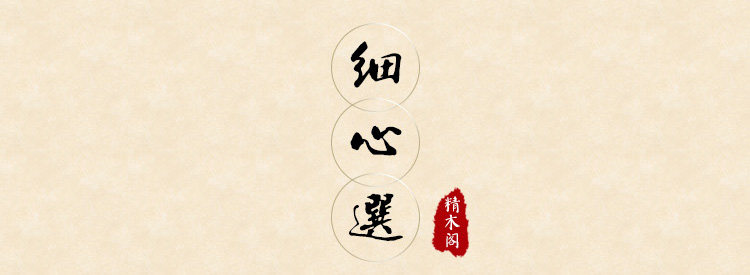 细心選
精木阁